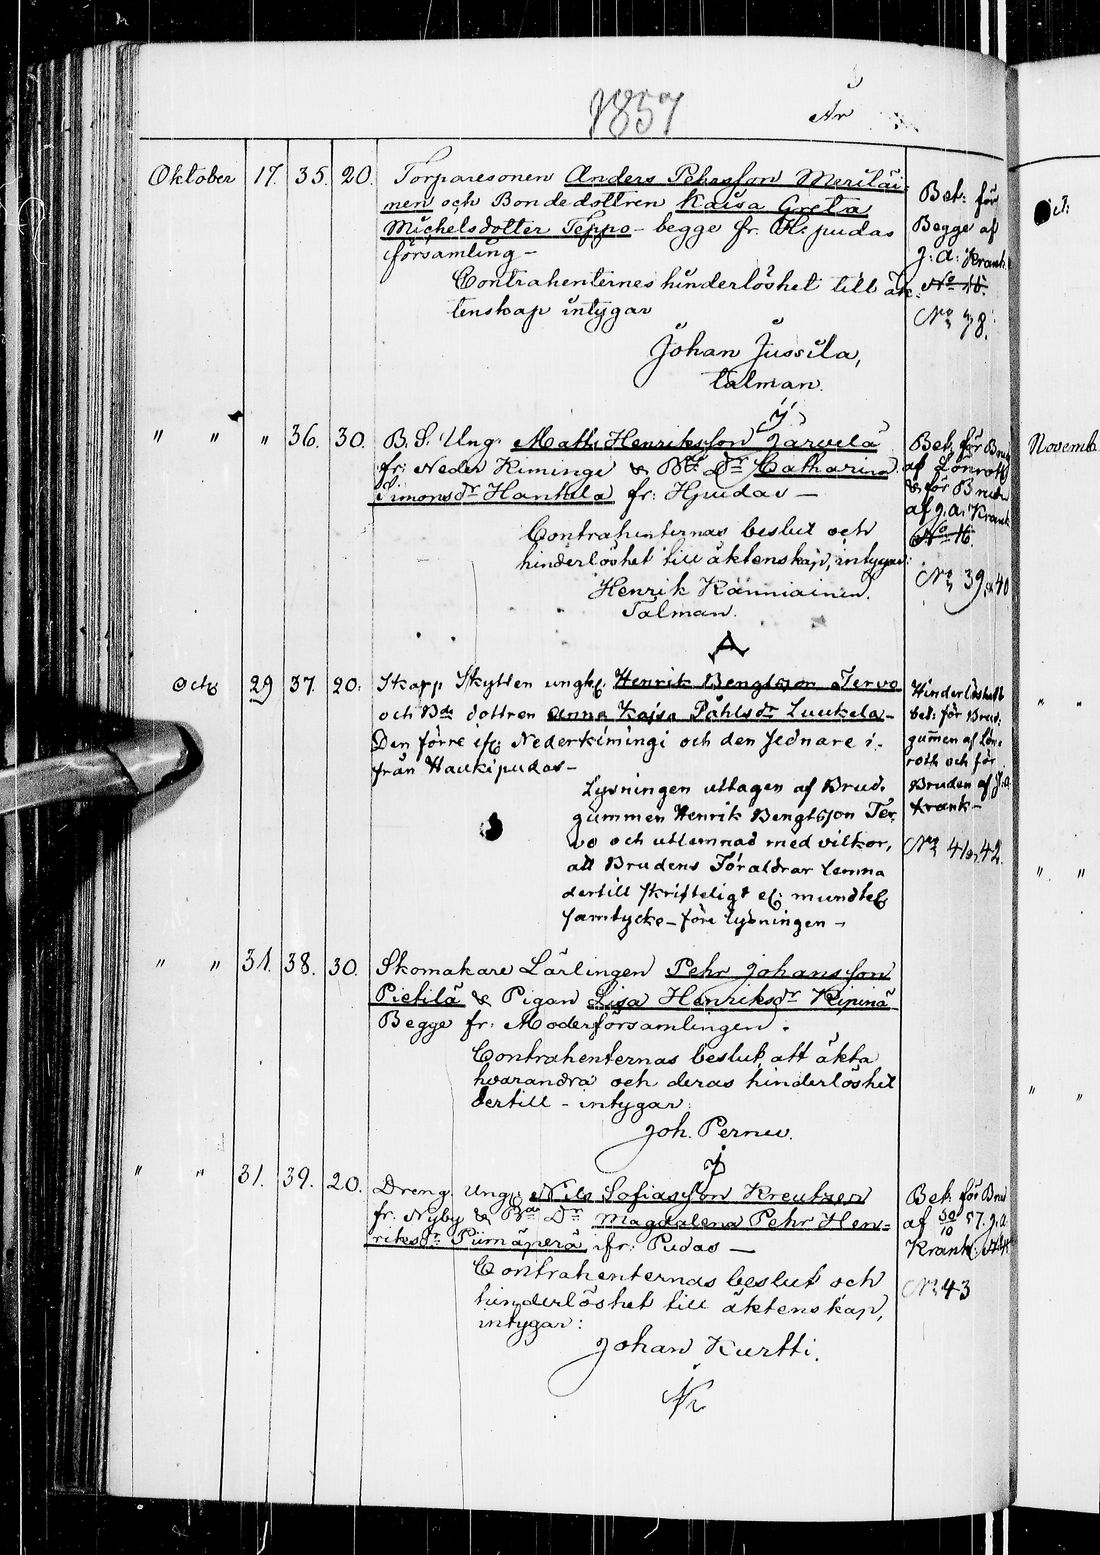 1857
År
Oktober 17. 35. 20. Torparesonen Anders Pehrsson Meriläi-
nen och Bondedottren Kaisa Greta
Michelsdotter Teppo - begge fr. H:pudas
församling -
Contrahenternes hinderlöshet till äk-
tenskap intygar
Johan Jussila,
talman.
Bet: för
Begge af
J: A: Krank
No 78.
" " " 36. 30. B. S. Ung. Matts Henriksson Jarvela
fr: Neder Kiminge & Bde dr Catharina
Simonsdr Hankela fr: Hpudas -
Contrahenternas beslut och
hinderlöshet till äktenskap, intygar:
Henrik Känniainen.
Talman.
Bet. för Brud
af Lönroth
& för Bruden
af J. A. Krank
No 16.
No 39, & 40
A
Octb 29 37. 20. Skarp Skytten ungk. Henrik Bengtsson Tervo
och Bde dottren Anna Kajsa Påhlsdr Luukela -
Den förre ifr. Nederkimingi och den sednare i-
från Haukipudas -
Lysningen uttagen af Brud-
gummen Henrik Bengtsson Ter-
vo och utlemnad med vilkor,
att Brudens Föräldrar lemna
dertill skrifteligt el. mundtel.
samtycke - före lysningen -
Hinderlöshets
bet: för Brud-
gumen af Lön-
roth och för
Bruden af J. A.
Krank -
No 41, 42.
" " 31. 38. 30. Skomakare Lärlingen Pehr Johansson
Pietilä & Pigan Lisa Henriksdr Kipinä
Begge fr: Moderförsamlingen.
Contrahenternas beslut att äkta
hvarandra och deras hinderlöshet
dertill - intygar:
Joh. Pernu.
" " 31. 39. 20. Dreng. Ungk. Nils Sofiasson Kreutzen
fr. Nyby & Bde Dr Magdalena Pehr Hen-
riksdr Piirnäperä ifr: Pudas -
Contrahenternas beslut och
hinderlöshet till äktenskap,
intygar:
Johan Kurtti.
Bet. för Brud
af 30/10 57. J. A.
Krank
No 43
Novemb